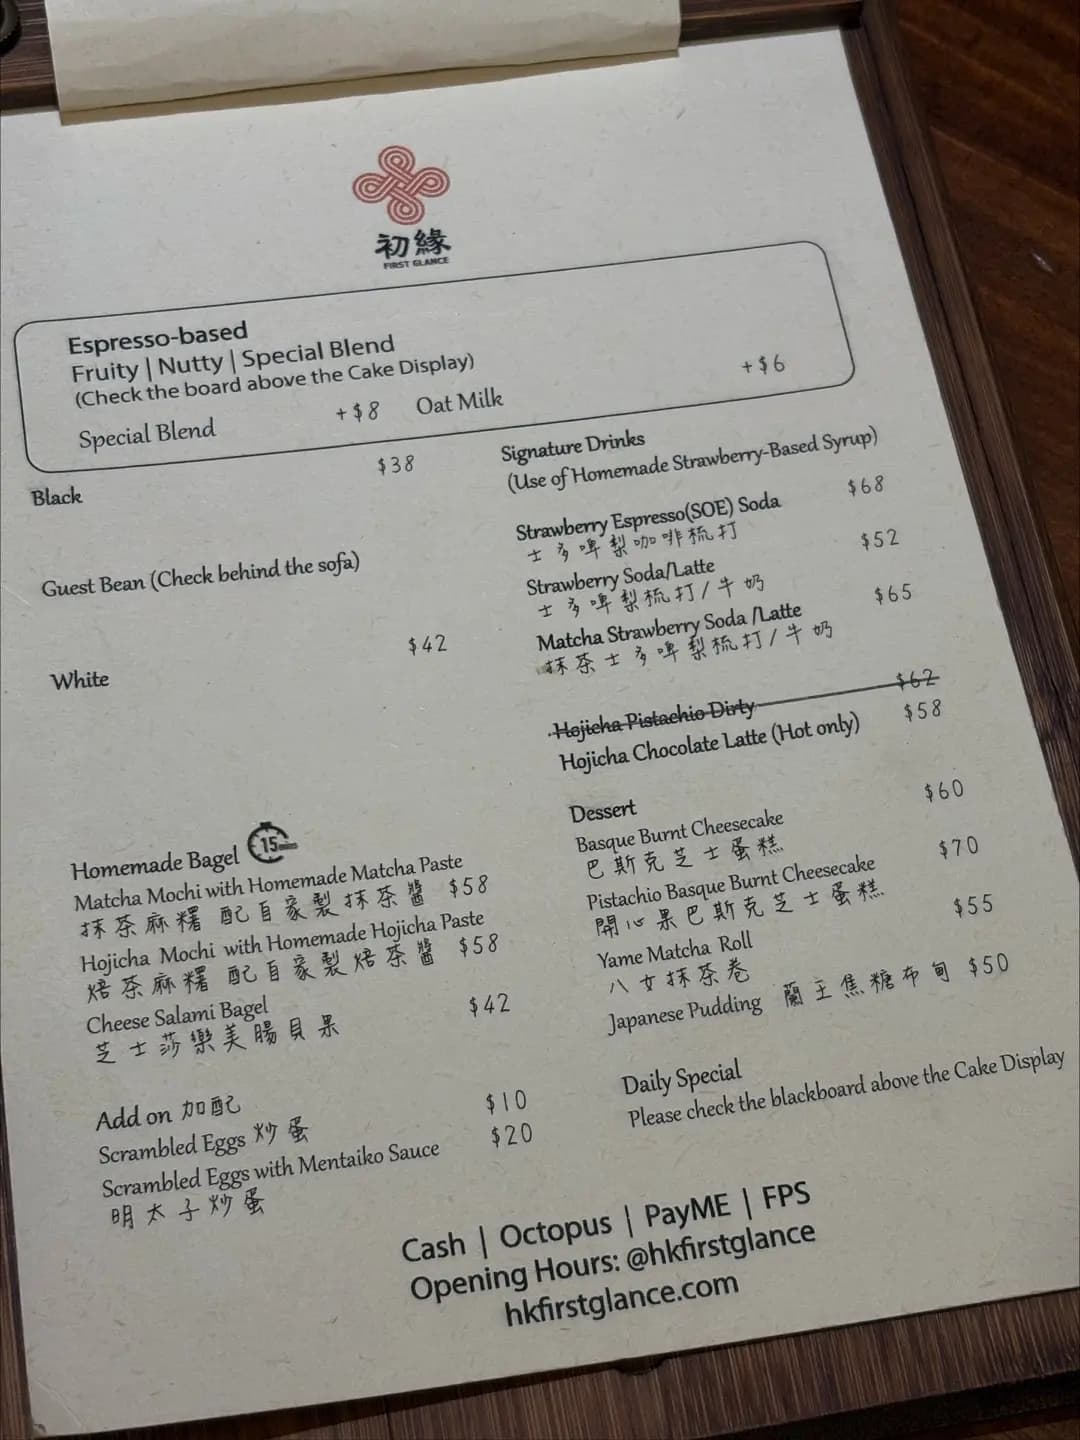 初緣
FIRST GLANCE
Espresso-based
Fruity | Nutty | Special Blend
(Check the board above the Cake Display)
Special Blend +$8 Oat Milk +$6
Black $38
Guest Bean (Check behind the sofa)
White $42
Signature Drinks
(Use of Homemade Strawberry-Based Syrup)
Strawberry Espresso(SOE) Soda $68
士多啤梨咖啡梳打
Strawberry Soda/Latte $52
士多啤梨梳打/牛奶
Matcha Strawberry Soda /Latte $65
抹茶士多啤梨梳打/牛奶
Hojicha Pistachio Dirty $62
Hojicha Chocolate Latte (Hot only) $58
Homemade Bagel 15
Matcha Mochi with Homemade Matcha Paste
抹茶麻糬 配自家製抹茶醬 $58
Hojicha Mochi with Homemade Hojicha Paste
焙茶麻糬 配自家製焙茶醬 $58
Cheese Salami Bagel $42
芝士莎樂美腸貝果
Add on 加配
Scrambled Eggs 炒蛋 $10
Scrambled Eggs with Mentaiko Sauce $20
明太子炒蛋
Dessert
Basque Burnt Cheesecake $60
巴斯克芝士蛋糕
Pistachio Basque Burnt Cheesecake $70
開心果巴斯克芝士蛋糕
Yame Matcha Roll $55
八女抹茶卷
Japanese Pudding 蘭王焦糖布甸 $50
Daily Special
Please check the blackboard above the Cake Display
Cash | Octopus | PayME | FPS
Opening Hours: @hkfirstglance
hkfirstglance.com